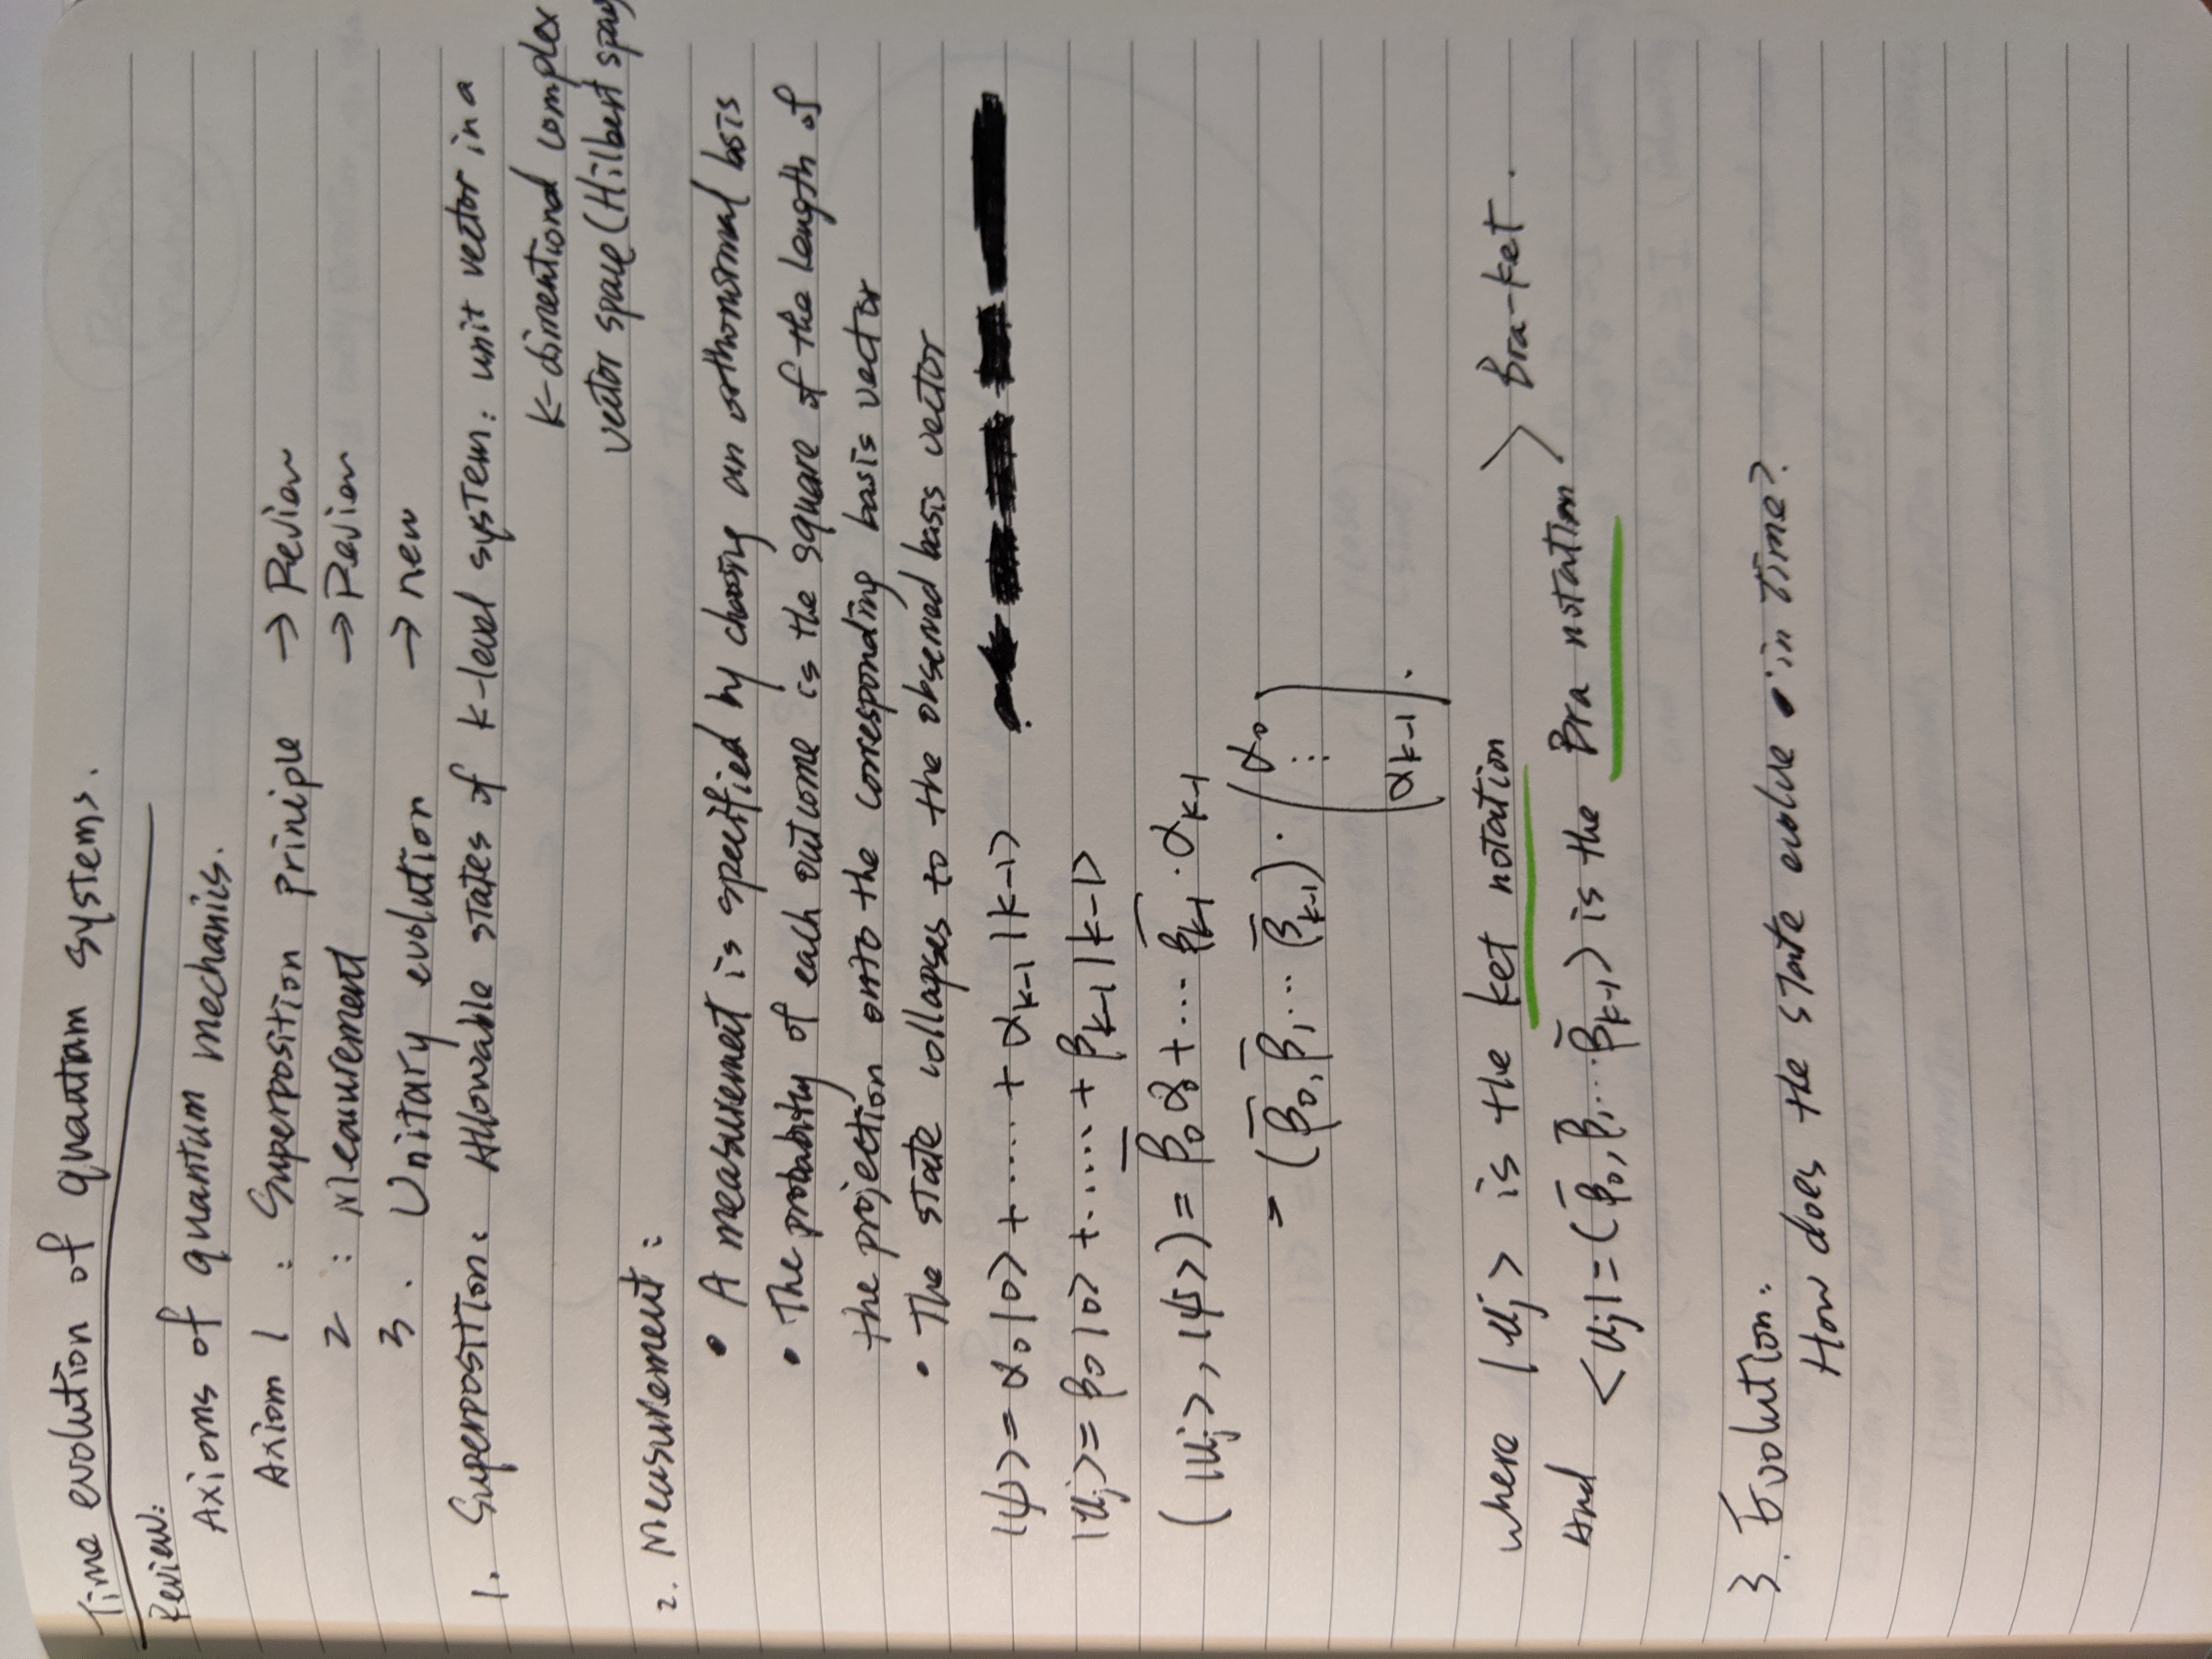 Time evolution of quantum systems.
Review:
Axioms of quantum mechanics.
Axiom 1 : Superposition priniple → Review
2 : Measurement → Review
3 . Unitary evolution → new
1. Superposition: Allowable states of k-level system: unit vector in a
k-dimentional complex
vector space (Hilbert space)
2. Measurement:
• A measurement is specified by choosing an orthonormal bsis
• The probability of each outcome is the square of the length of
the projection onto the corresponding basis vector
• The state collapses to the observed basis vector
|ψ> = α₀|0> + ..... + αₖ₋₁|k-1>
|uⱼ> = β₀|0> + ...... + βₖ₋₁|k-1>
(|uⱼ>, |ψ>) = β̄₀α₀ + ... β̄ₖ₋₁ · αₖ₋₁
= (β̄₀, β̄₁ ... β̄ₖ₋₁) · (α₀
⋮
αₖ₋₁).
where |uⱼ> is the ket notation
And <uⱼ| = (β̄₀, β̄₁ ... β̄ₖ₋₁) is the Bra notation > Bra-ket.
3. Evolution:
How does the state evolve in time?